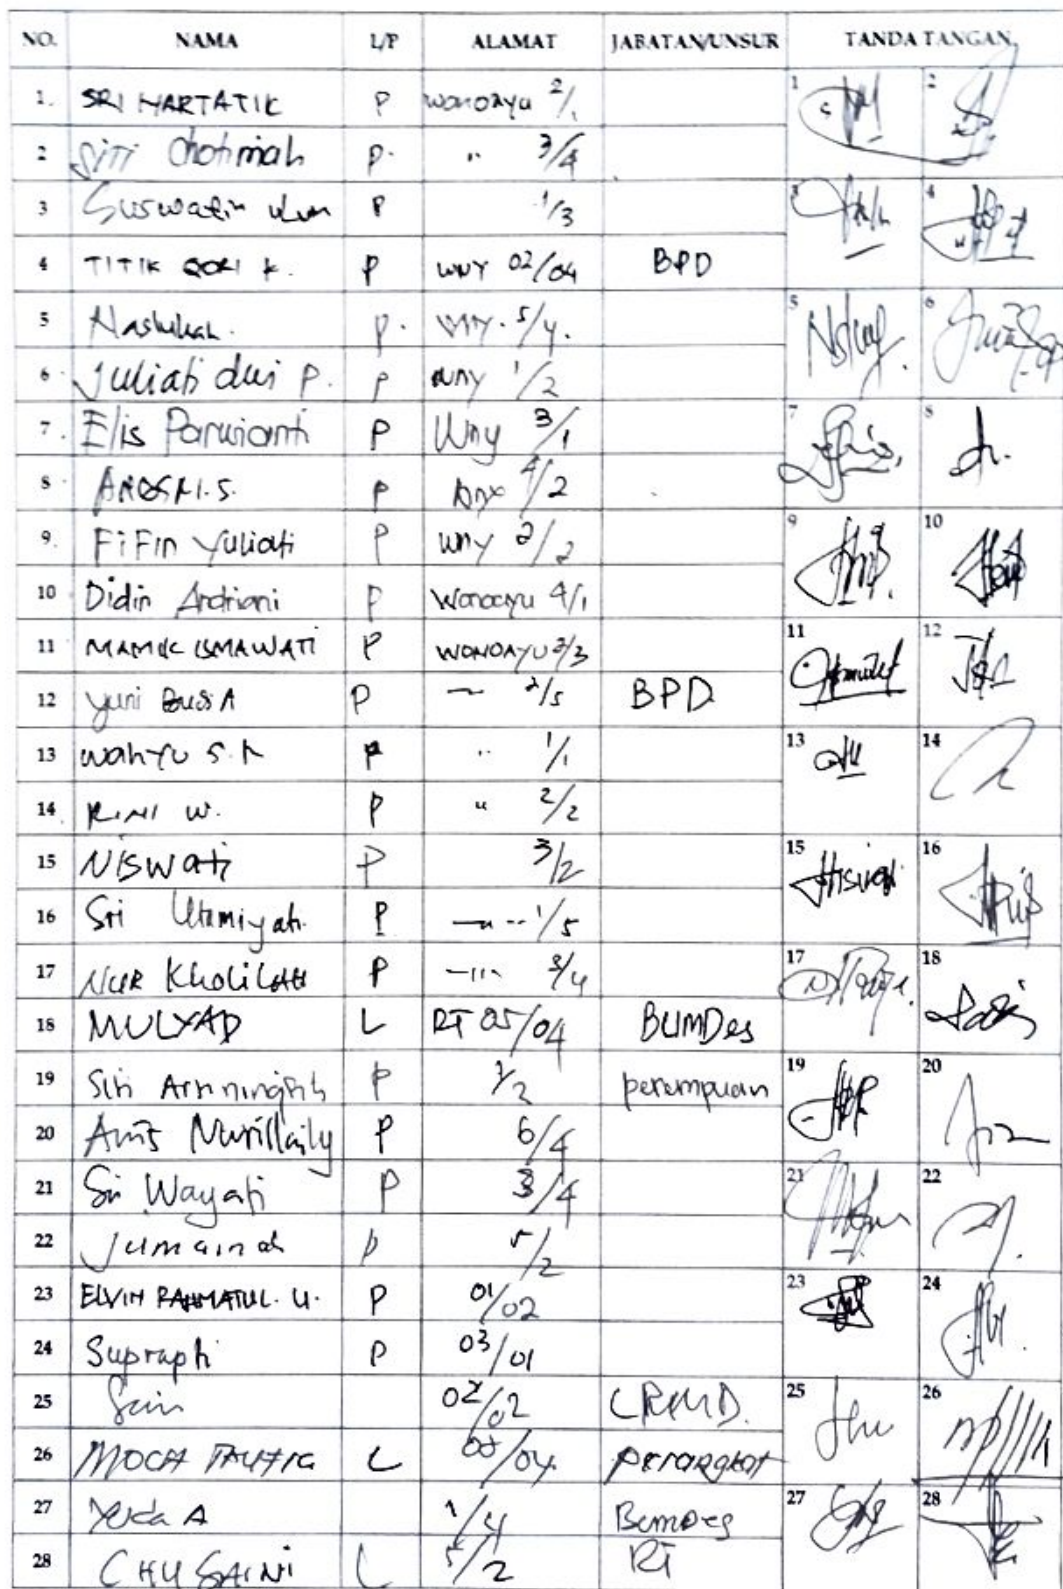 NO. NAMA L/P ALAMAT JABATAN/UNSUR TANDA TANGAN
1. SRI HARTATIK P Wonoayu 2/1 1 2
2 Siti Chotimah P. " 3/4
3 Suswatin P 1/3 3 4
4 TITIK QORI K. P WNY 02/04 BPD
5 Maslukah. P. WNY. 5/4. 5 6
6 Juliati dwi P. P WNY 1/2
7. Elis Parwianti P Wny 3/1 7 8
8 P 4/2
9. FiFin Yuliati P wny 2/2 9 10
10 Didin Andriani P Wonoayu 4/1
11 MAMIK ISMAWATI P WONOAYU 2/3 11 12
12 Yuni A P 2/5 BPD
13 Wahyu S. P " 1/1 13 14
14 RINI W. P " 2/2
15 NISWati P 3/2 15 16
16 Sri Utamiyati P — " -- 1/5
17 NUR KHOLILAH P 3/4 17 18
18 MULYAD L RT 05/04 BUMDes
19 Siti Arminingsih P 1/2 perempuan 19 20
20 Anis Nurillaily P 6/4
21 Sri Wayati P 3/4 21 22
22 Jumainah P 5/2
23 ELVIN RAHMATUL. U. P 01/02 23 24
24 Suprapti P 03/01
25 02/02 25 26
26 MOCH TAUFIQ L /04 perangkat
27 Yuda A 1/4 Bumdes 27 28
28 CHUSAINI L 5/2 RT